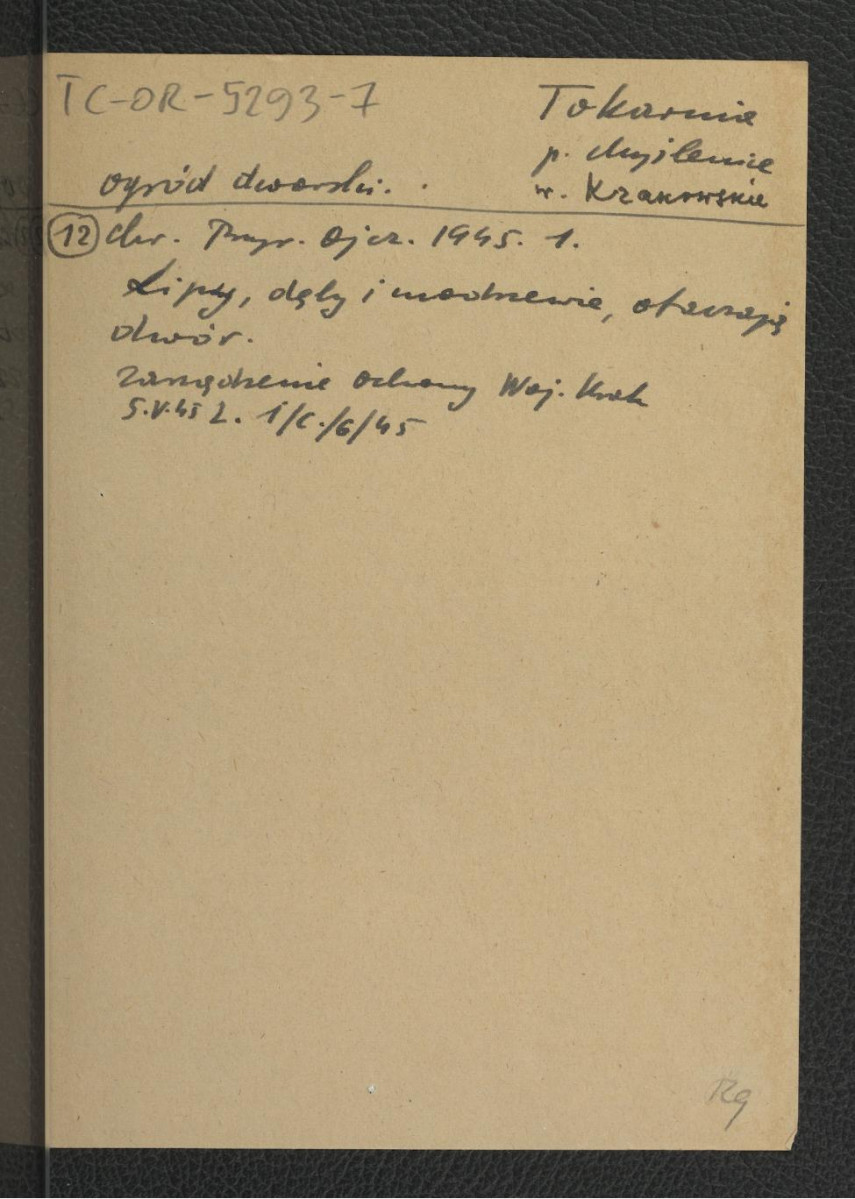 TC-OR-5293-7
Tokarnia
p. Myślenice
ogród dworski.
w. Krakowskie
12 Chr. Przyr. Ojcz. 1945. 1.
Lipy, dęby i modrzewie, otaczają
dwór.
Zarządzenie ochrony Woj. Krak
5.V.45 L. 1/C./6/45
Rg